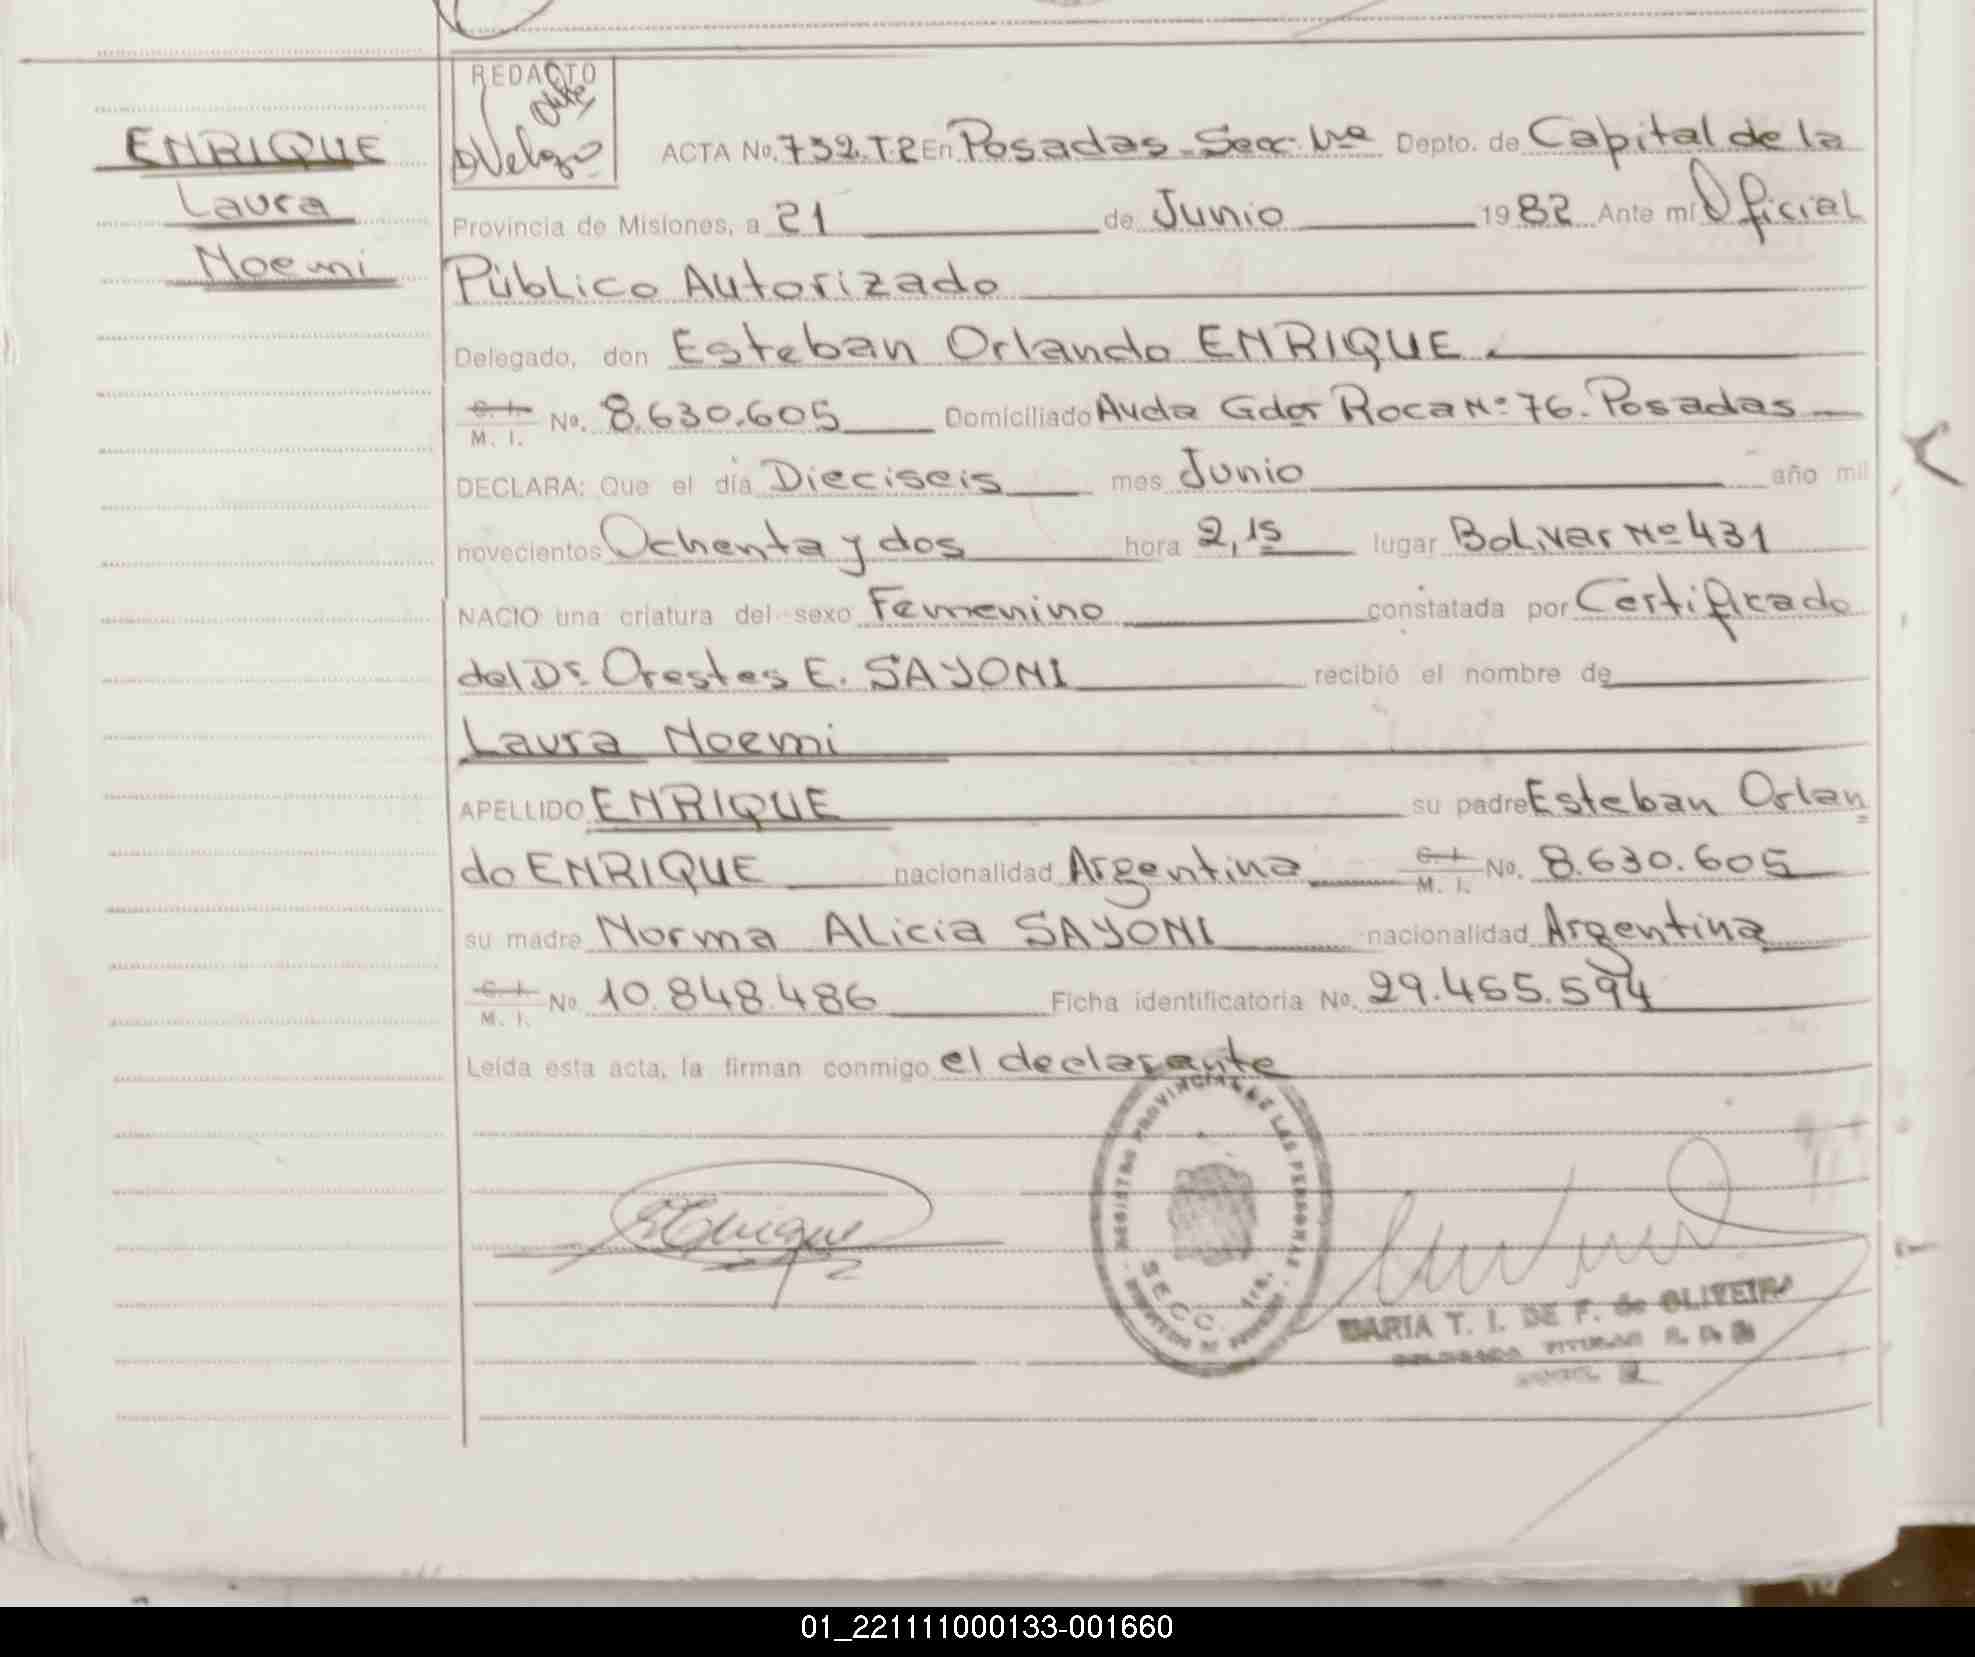 ENRIQUE
Laura
Noemi
REDACTO
ACTA No. 732.T.2 En Posadas - Secc. 1ra Depto. de Capital de la
Provincia de Misiones, a 21 de Junio 1982 Ante mí Oficial
Público Autorizado
Delegado, don Esteban Orlando ENRIQUE.
C. I. M. I. No. 8.630.605 Domiciliado Avda Gdor Roca Nº 76. Posadas
DECLARA: Que el día Dieciseis mes Junio año mil
novecientos Ochenta y dos hora 2,15 lugar Bolivar Nº 431
NACIO una criatura del sexo Femenino constatada por Certificado
del Dr. Orestes E. SAYONI recibió el nombre de
Laura Noemi
APELLIDO ENRIQUE su padre Esteban Orlan
do ENRIQUE nacionalidad Argentina C. I. M. I. No. 8.630.605
su madre Norma Alicia SAYONI nacionalidad Argentina
C. I. M. I. No. 10.848.486 Ficha identificatoria No. 29.455.594
Leída esta acta, la firman conmigo el declarante
REGISTRO PROVINCIAL DE LAS PERSONAS
SECC. 1ra.
MARIA T. I. DE F. de OLIVEIRA
01_221111000133-001660